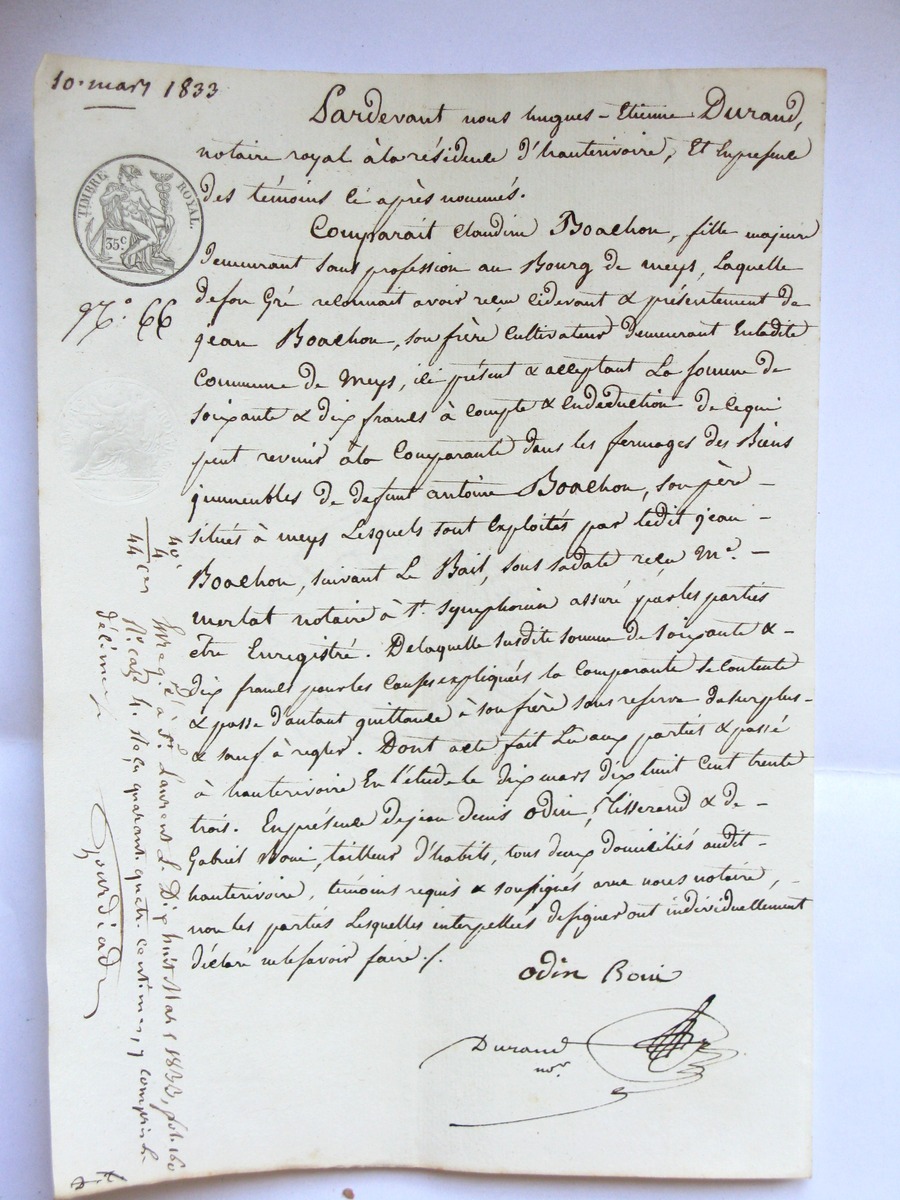 10. mars 1833
Pardevant nous hugues-Etienne Durand,
notaire royal à la résidence d'hauterivoire, Et En presence
des témoins ci après nommés.
Comparait Claudine Boachon, fille majeure
demeurant sans profession au Bourg de meys, Laquelle
de son Gré reconnait avoir reçu cidevant & présentement de
jean Boachon, son frère cultivateur demeurant En ladite
Commune de Meys, ici présent & acceptant La somme de
soixante & dix francs à compte & En déduction de ce qui
peut revenir à la Comparante dans les fermages des Biens
immeubles de defunt antoine Boachon, son père
situés à meys Lesquels sont exploités par ledit jean
Boachon, suivant Le Bail, sous sa date reçu Me.
merlat notaire à St. Symphorien assuré par les parties
être Enregistré. De laquelle susdite somme de soixante &
dix francs pour les causes expliquées la Comparante se contente
& passe d'autant quittance à son frère sous reserve du surplus
& sauf à regler. Dont acte fait Lu aux parties & passé
à hauterivoire En l'étude le dix mars dix huit cent trente
trois. En présence de jean denis Odin, Tisserand & de
Gabriel Roni, tailleur d'habits, tous deux domiciliés audit
hauterivoire, témoins requis & soussignés avec nous notaire,
non les parties Lesquelles interpellées de signer ont individuellement
déclaré ne le savoir faire ./.
Odin Roni
Durand
nore
TIMBRE ROYAL.
35c.
No. 66
40c
4
44 cms
Enregé à St. Laurent L. Dix huit Mars 1833, fol. 160
Ro. case 4. reçu quarante quatre centimes, y compris le
décime
Gourdiad